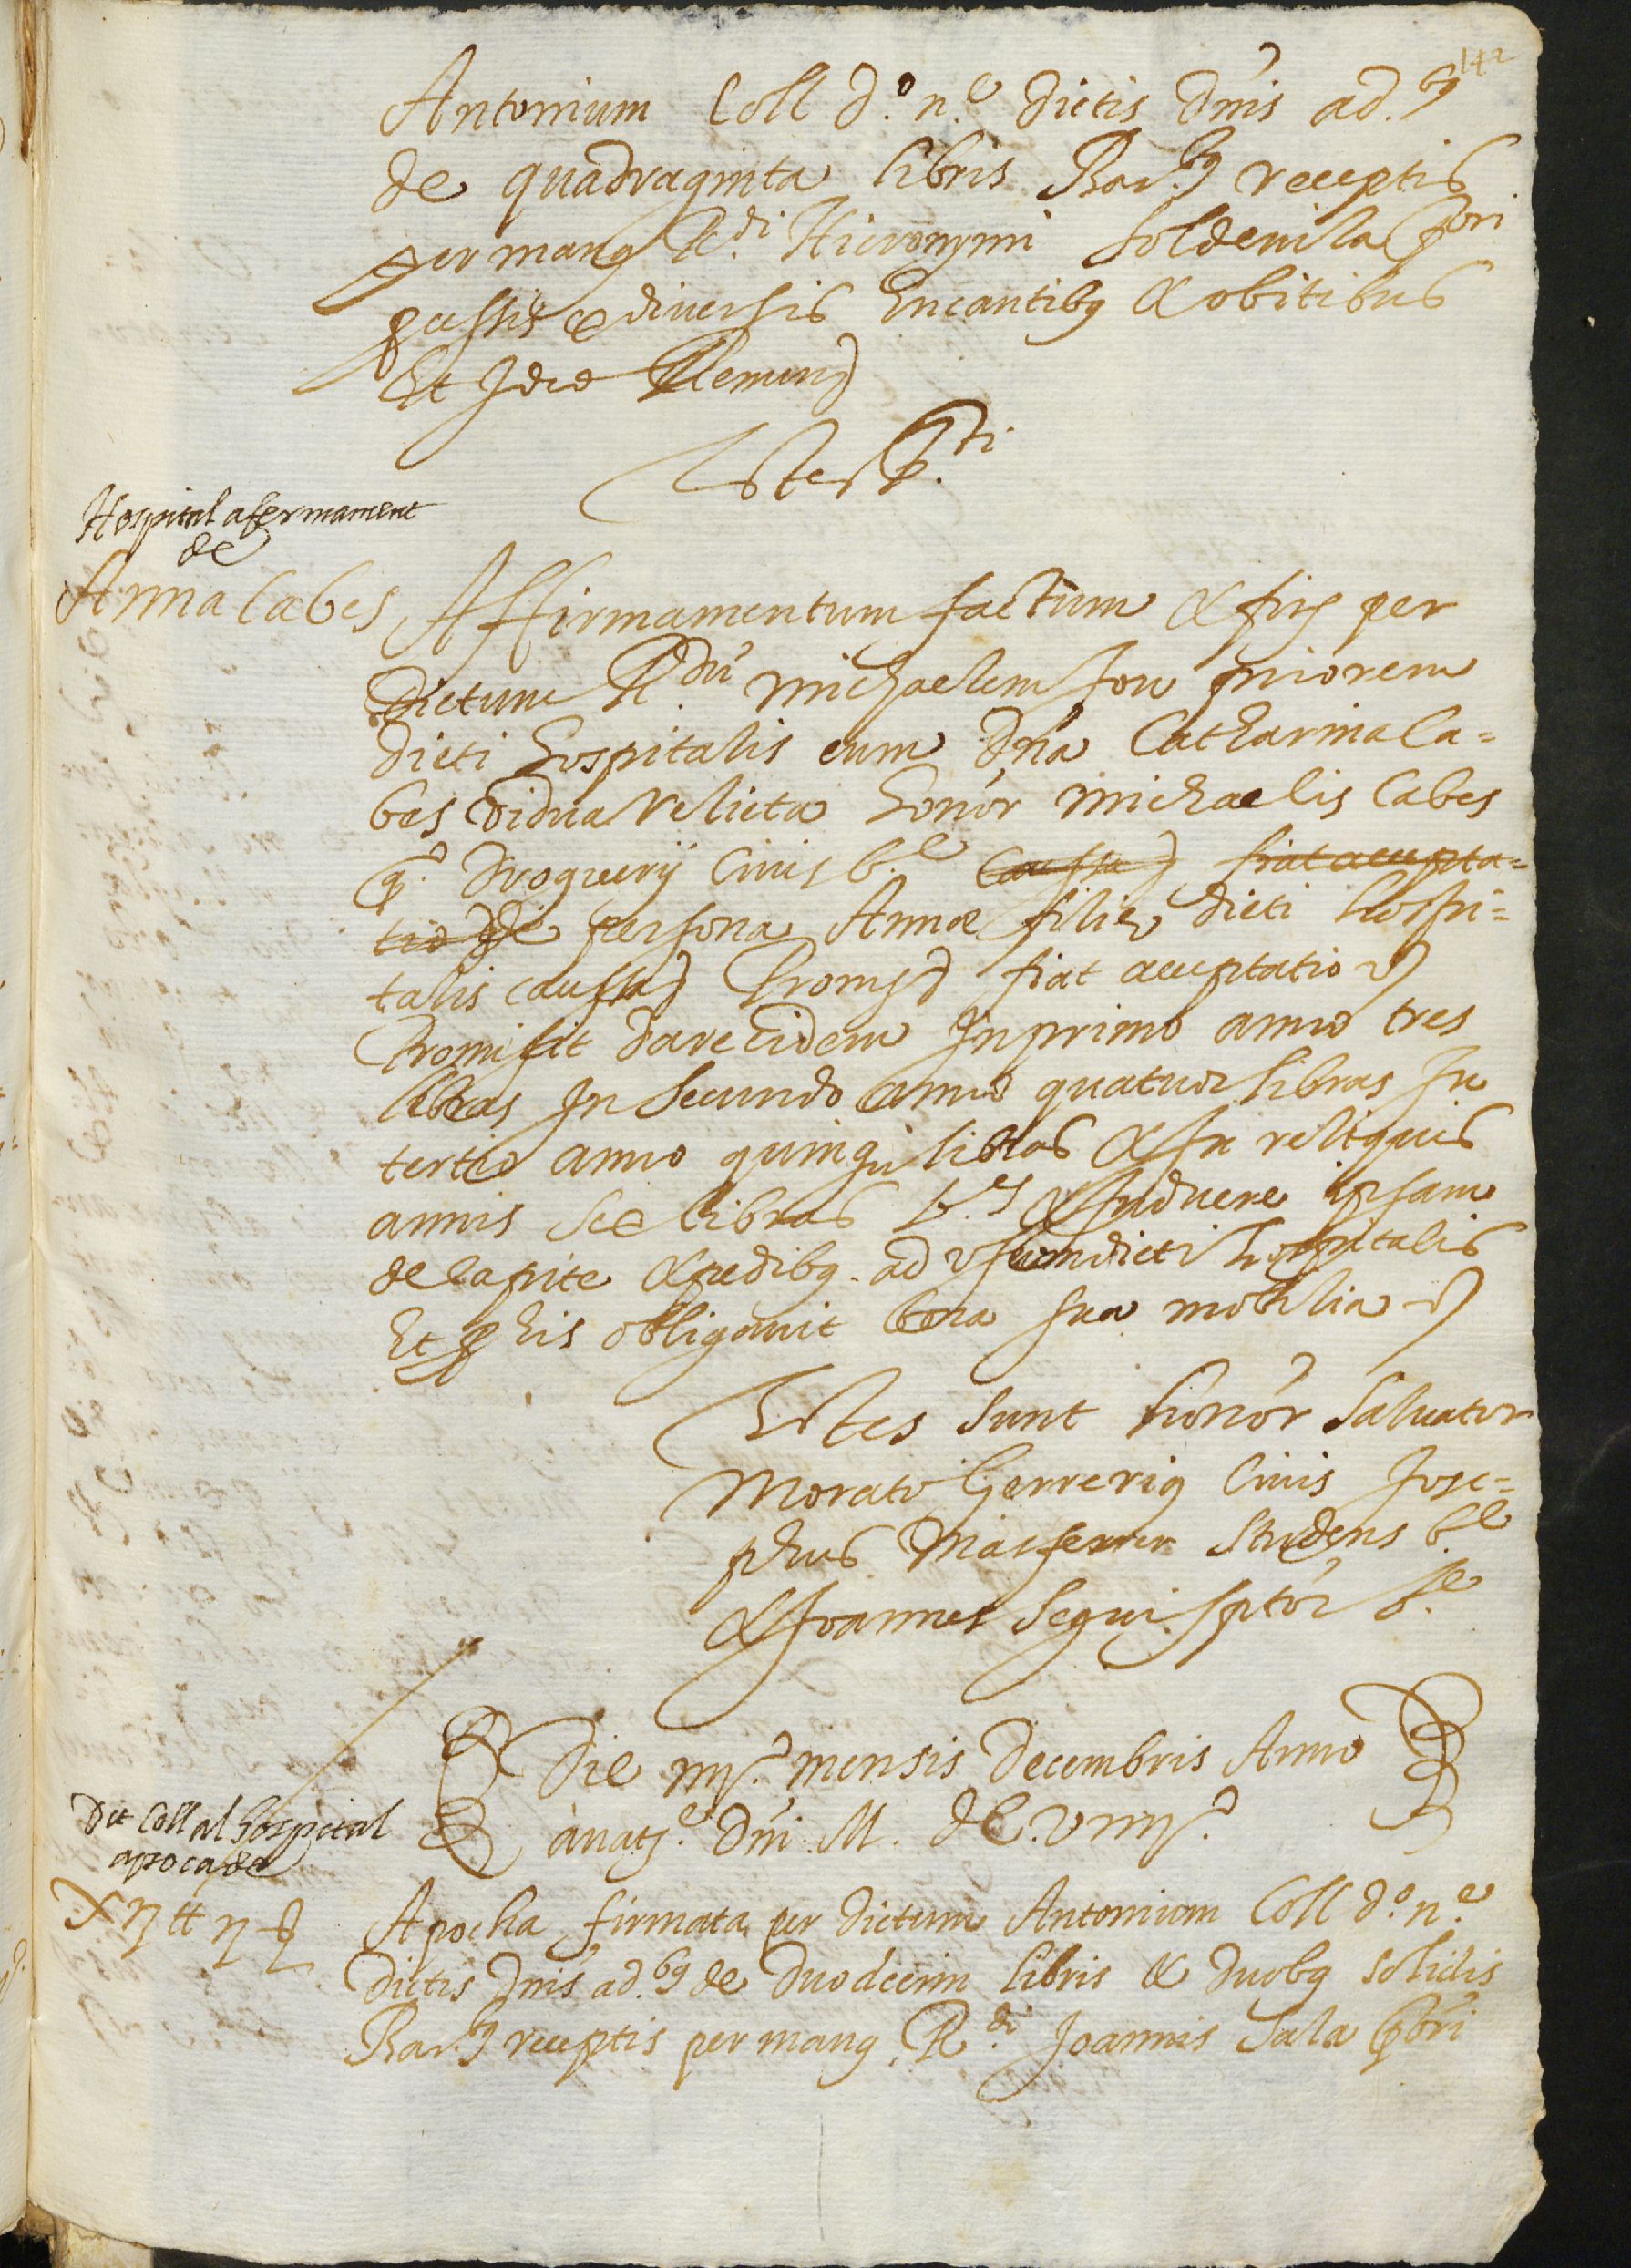 142
Antonium Coll d.º n.e dictis Dnis ad.bq
de quadraginta libris Bar.bq receptis
per manq R.di Hieronymi Soldevila p̃bri
p̃cessis e diversis Encantibq & obitibus
Et Ideo Renuns)
Testes p.ti
Hospital afermament
de
Anna Cabes
Affirmamentum factum & firᵗ per
dictum R.dũ Michaelem Jou priorem
dicti Hospitalis cum Dña Catharina Ca=
bes vidua relicta honor Michaelis Cabes
q.º Droguerij Civis b.e Caussa) fiat accepta=
tio de persona Annæ filie dicti Hospi=
talis caussa) Promss) fiat acceptatio &)
Promisit dare Eidem In primo anno tres
libras In secundo anno quatuor libras In
tertio anno quinqu libras & In reliquis
annis sex libras b.es & Induere ipsam
de capite & pedibq. ad usum dicti hospitalis
Et p̱ his obligavit bona sua mobilia &)
Testes sunt honor Salvator
Morato Gerreriq Civis Jose=
phus Masferrer Studens b.e
& Joannes Segui sptor b.e
Die iiij.º mensis Decembris Anno
a natj.e Dñi M. dC. viiij.º
Dit Coll al hospital
apoca de
Xij tt ij ß
Apocha firmata per dictum Antonium Coll d.º n.e
dictis Dnis ad.bq de Duodecim libris & duobq solidis
Bar.q receptis per manq R.di Joannis Sala p̃bri